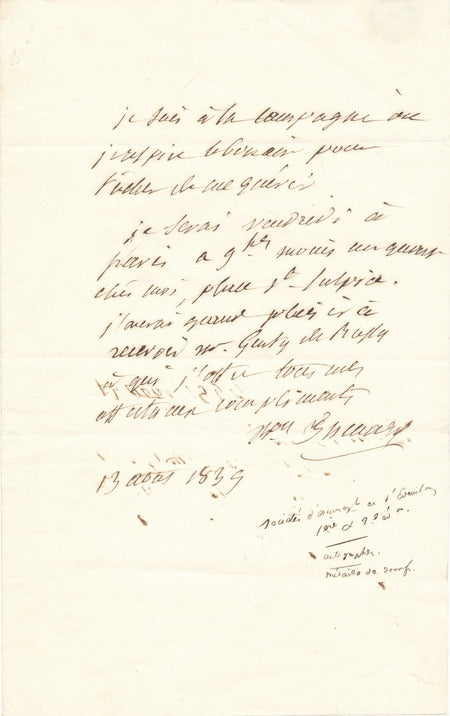 je suis à la campagne où
j'aspire le bon air pour
tâcher de me guérir
je serai vendredi à
paris a 9 h moins un quart
chés moi, place St Sulpice.
j'aurai grand plaisir à
recevoir mr. de
à qui j'offre tous mes
affectueux compliments
13 août 1839
sociétés d' et d'
1ère et 2e
autographes.
médaille de